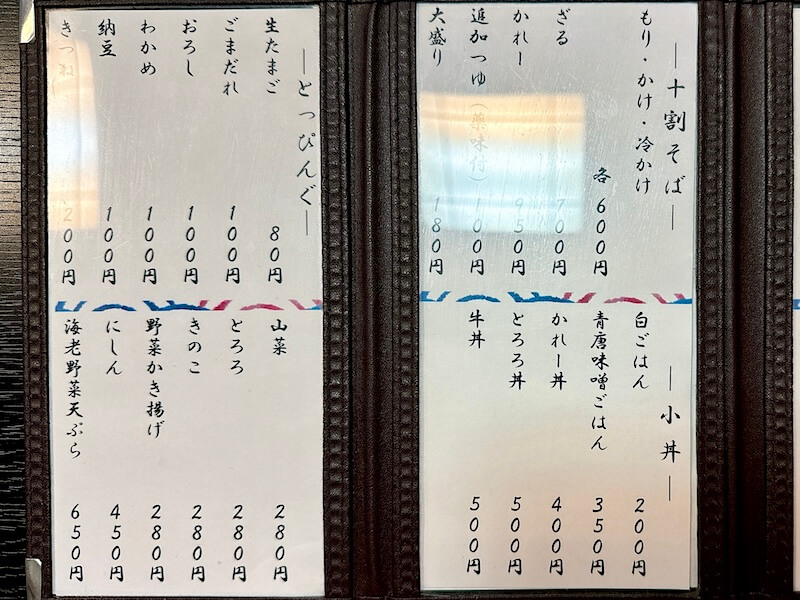 ―十割そば―
もり・かけ・冷かけ
各 600円
ざる 700円
かれー 950円
追加つゆ（薬味付） 100円
大盛り 180円
―小丼―
白ごはん 200円
青唐味噌ごはん 350円
かれー丼 400円
とろろ丼 500円
牛丼 500円
―とっぴんぐ―
生たまご 80円
ごまだれ 100円
おろし 100円
わかめ 100円
納豆 100円
きつね 200円
山菜 280円
とろろ 280円
きのこ 280円
野菜かき揚げ 280円
にしん 450円
海老野菜天ぷら 650円